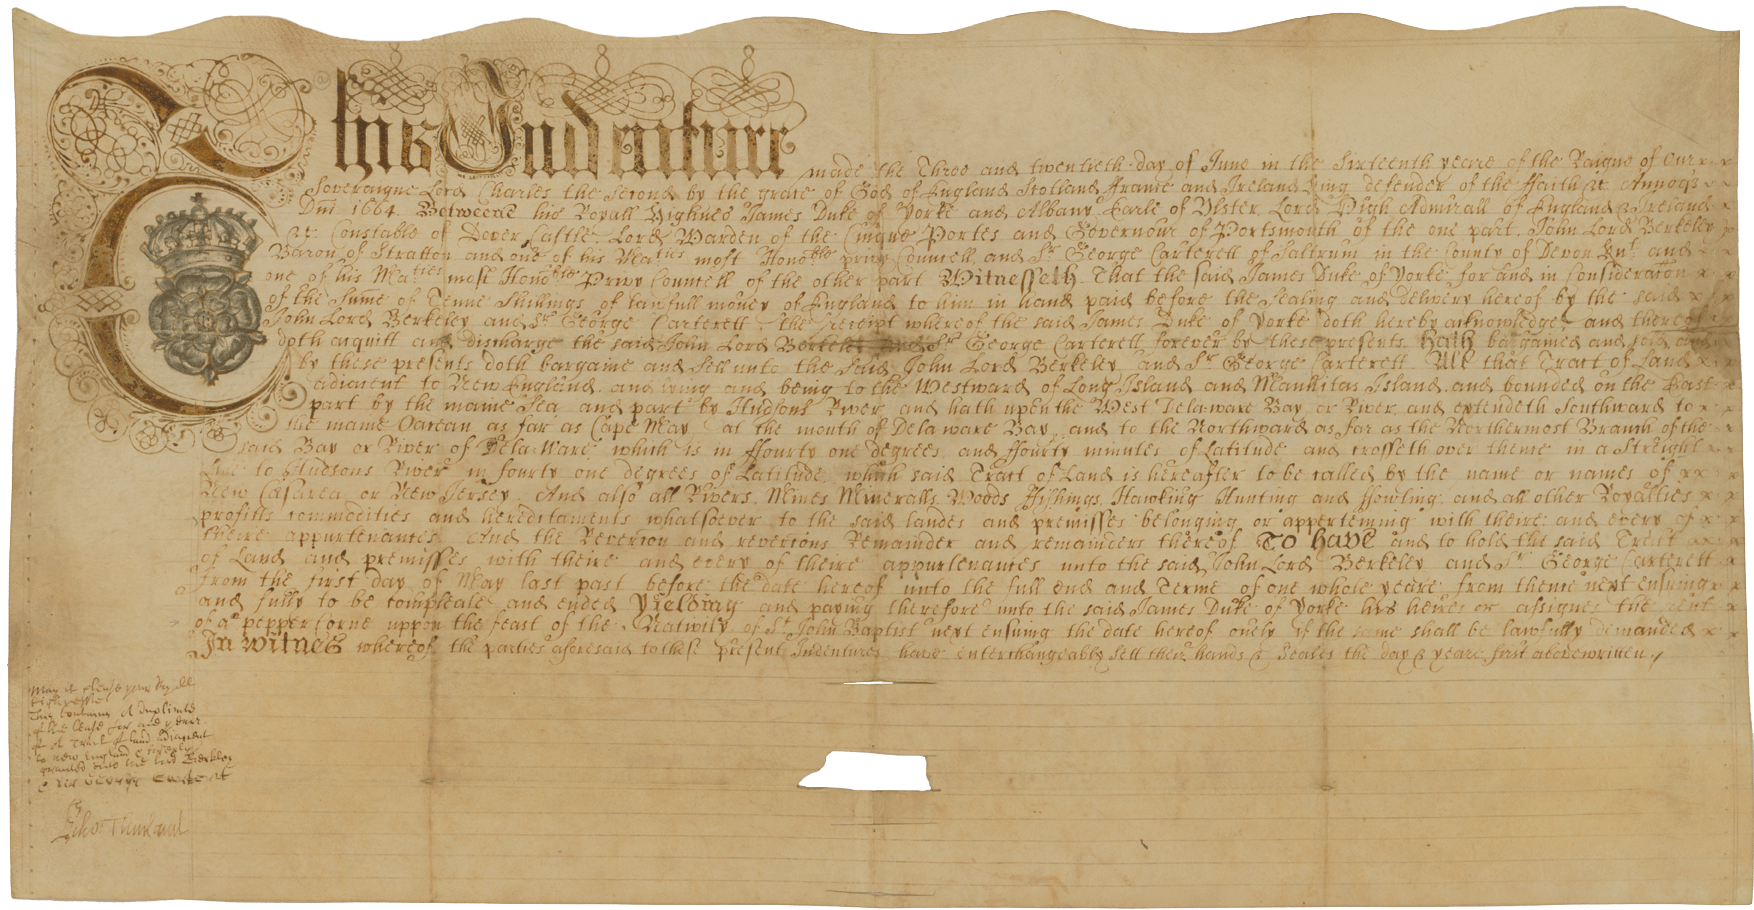 This Indenture made the Three and twentieth day of June in the Sixteenth yeare of the Raigne of Our
Soveraigne Lord Charles the Second by the grace of God of England Scotland ffrance and Ireland King defender of the ffaith &c Annoq3
Dni 1664. Betweene his Royall Highnes James Duke of Yorke and Albany Earle of Ulster Lord High Admirall of England & Ireland
&c Constable of Dover Castle Lord Warden of the Cinque Portes and Governour of Portsmouth of the one part John Lord Berkeley
Baron of Stratton and one of his Maties most Honoble privy Councell and Sr George Carterett of Saltrum in the County of Devon Knt and
one of his Maties most Honoble Privy Councell of the other part Witnesseth That the said James Duke of Yorke for and in consideracon
of the Sume of Tenne Shillings of lawfull money of England to him in hand paid before the Sealing and delivery hereof by the said
John Lord Berkeley and Sr George Carterett the receipt whereof the said James Duke of Yorke doth hereby acknowledge and thereof
doth acquitt and discharge the said John Lord Berkeley and Sr George Carterett forever by these presents Hath bargained and sold and
by these presents doth bargaine and sell unto the said John Lord Berkeley and Sr George Carterett All that Tract of Land
adiacent to New England and lying and being to the Westward of Long Island and Manhitas Island and bounded on the East
part by the maine Sea and part by Hudsons River and hath upon the West Delaware Bay or River and extendeth Southward to
the maine Oacean as far as Cape May at the mouth of Delaware Bay and to the Northward as far as the Northermost Branch of the
said Bay or River of Dela Ware which is in ffourty one degrees and ffourty minutes of Latitude and crosseth over thence in a Streight
Line to Hudsons River in fourty one degrees of Latitude which said Tract of Land is hereafter to be called by the name or names of
New Cesarea or New Jersey And also all Rivers Mines Mineralls Woods Fishings Hawking Hunting and ffowling and all other Royalties
profitts commodities and hereditaments whatsoever to the said landes and premisses belonging or apperteining with theire and every of
theire appurtenantes And the Revercon and revercons Remainder and remainders thereof To have and to hold the said Tract
of Land and premisses with theire and every of theire appurtenantes unto the said John Lord Berkeley and Sr George Carterett
from the first day of May last past before the date hereof unto the full end and Terme of one whole yeare from thence next ensuing
and fully to be compleate and ended Yielding and paying therefore unto the said James Duke of Yorke his heires or assignes the rent
of a pepper Corne uppon the feast of the Nativity of St John Baptist next ensuing the date hereof onely if the same shall be lawfully demanded
In witnes whereof the parties aforesaid to these present Indentures have enterchangeably sett their hands & Seales the day & yeare first abovewritten
May it please your Royall
highnesse
This containes A duplicate
of the Lease for one yeare
of A Tract of land Adiacent
to new England & formerly
granted unto the lord Berkley
& Sir George Carteret